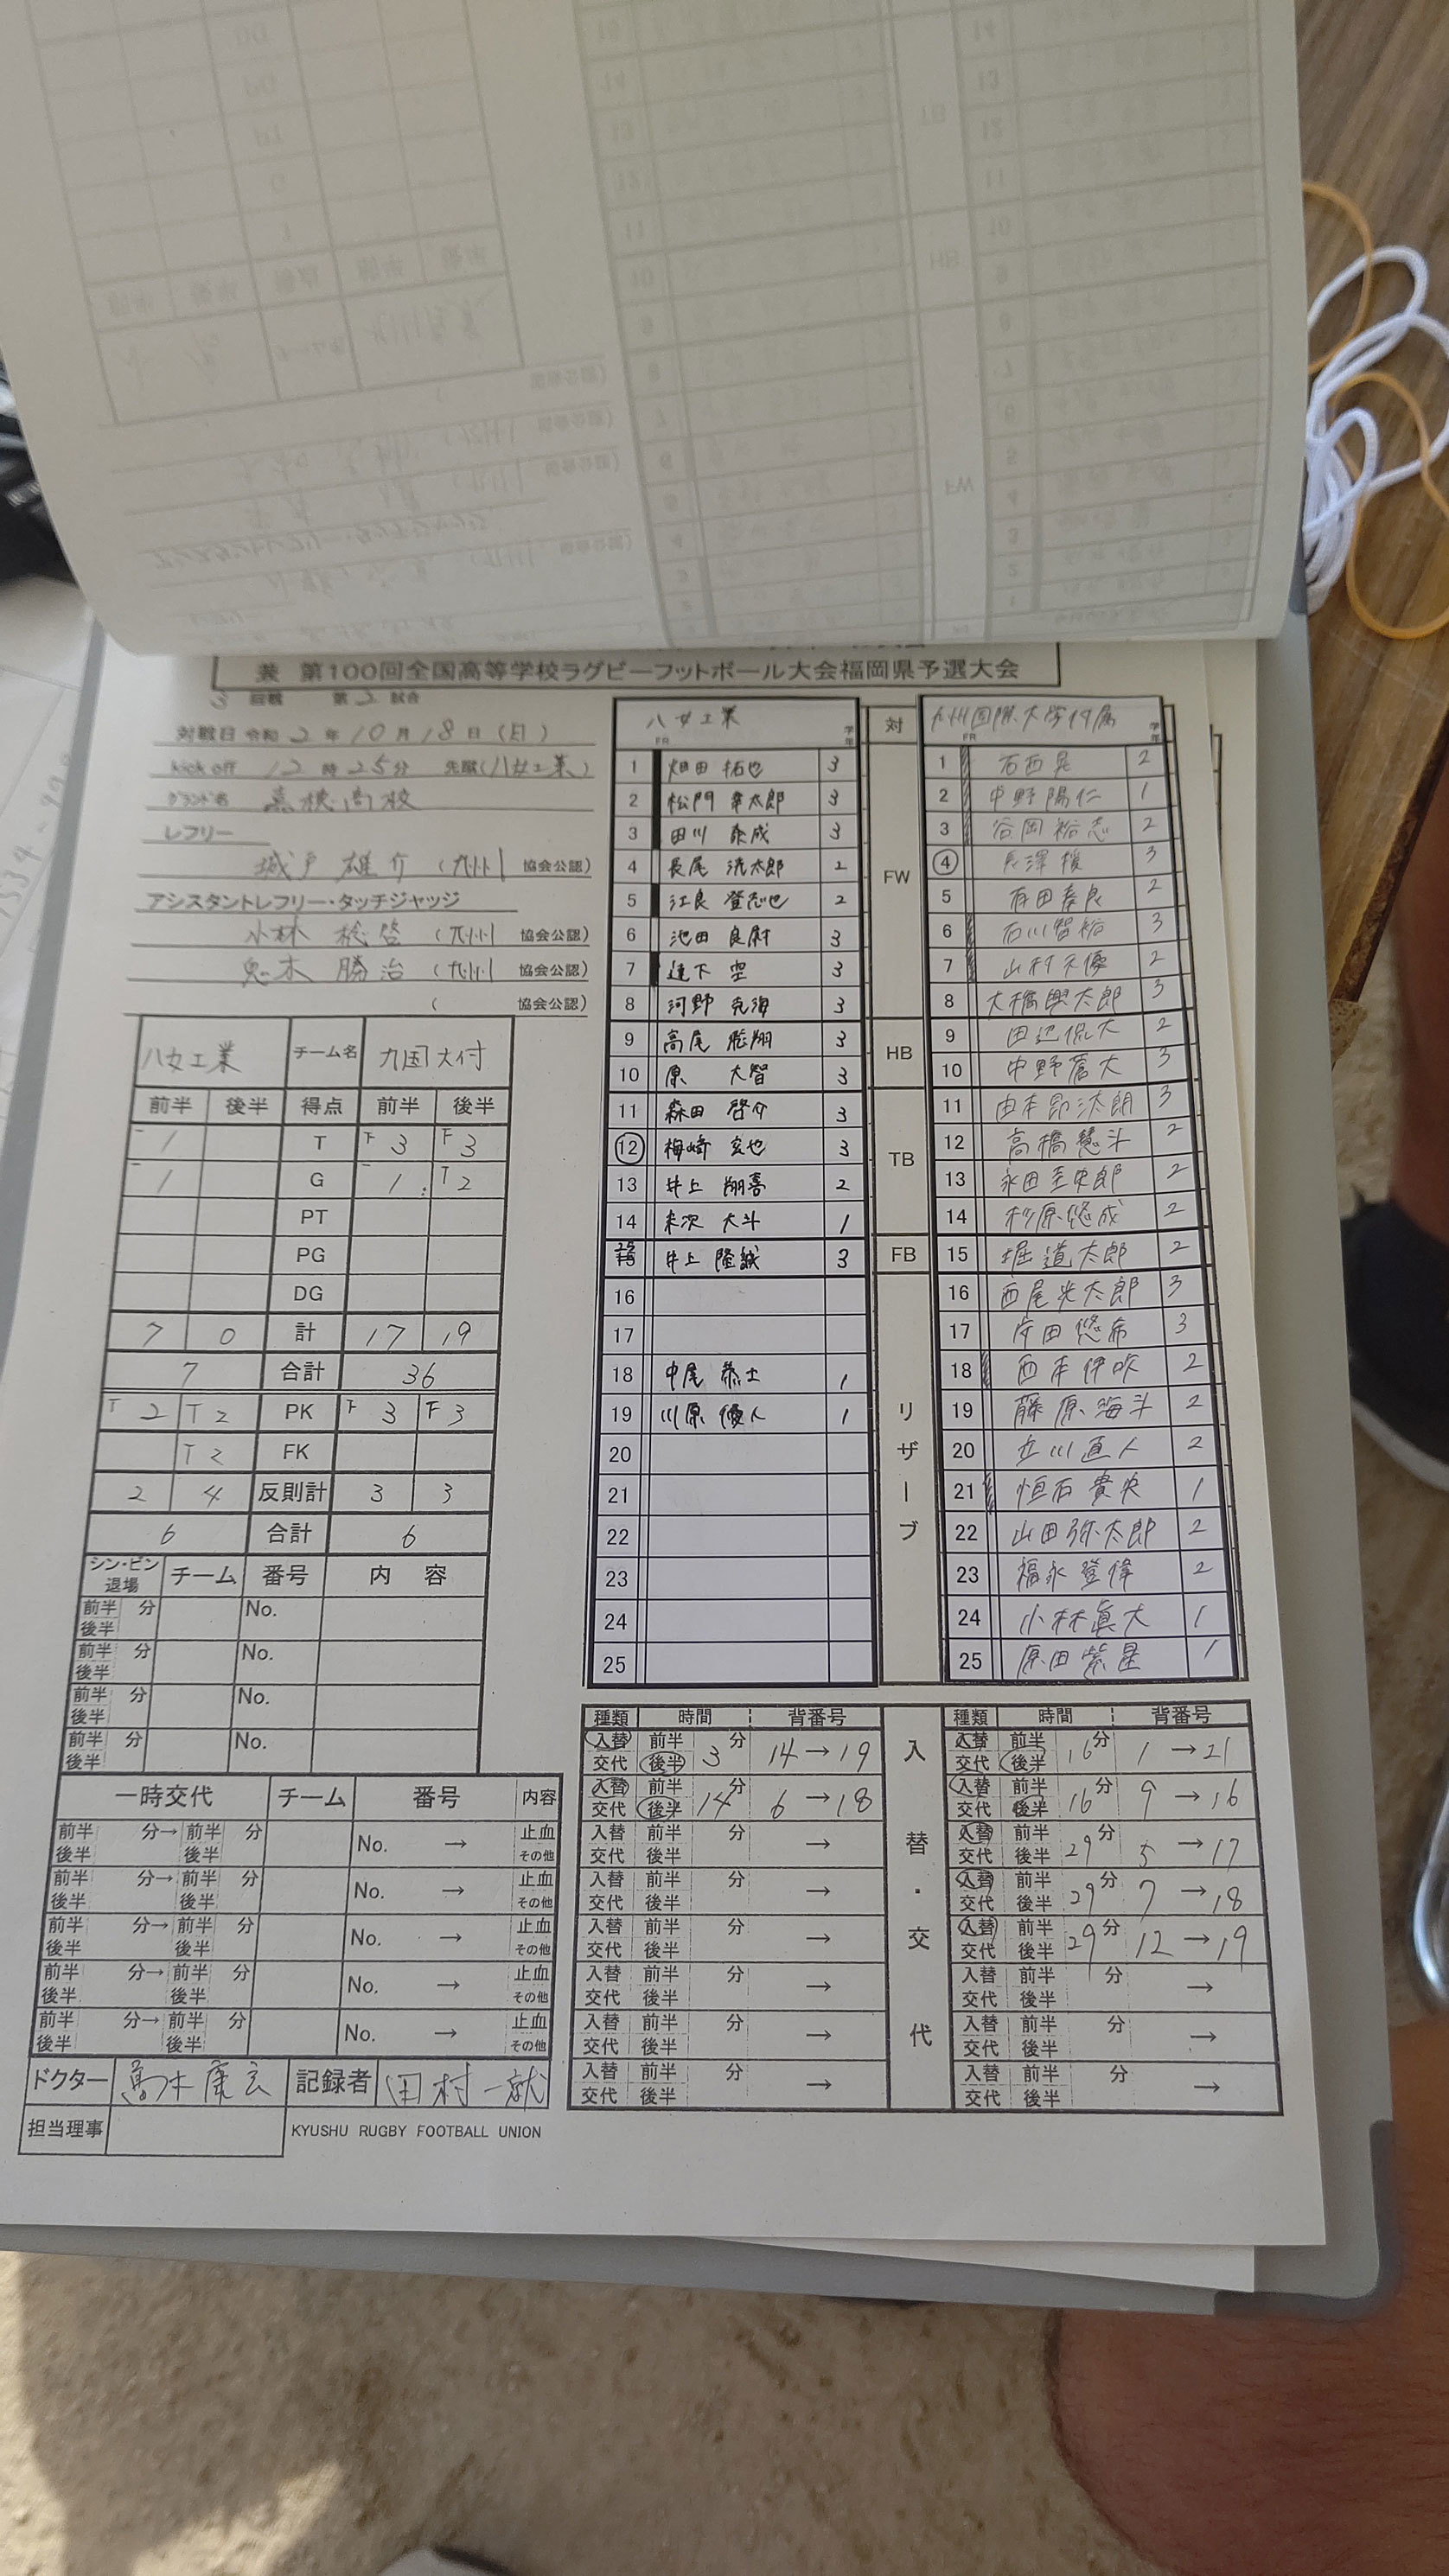 兼 第100回全国高等学校ラグビーフットボール大会福岡県予選大会
3 回戦 第 2 試合
対戦日 令和 2 年 10 月 18 日 (日)
kick off 12 時 25 分 先蹴 (八女工業)
グランド名 嘉穂高校
レフリー
城戸 雄介 (九州 協会公認)
アシスタントレフリー・タッチジャッジ
小林 稔啓 (九州 協会公認)
鬼木 勝治 (九州 協会公認)
( 協会公認)
八女工業 チーム名 九国大付
前半 後半 得点 前半 後半
1 T 3 3
1 G 1 2
PT
PG
DG
7 0 計 17 19
7 合計 36
2 2 PK 3 3
2 FK
2 4 反則計 3 3
6 合計 6
シン・ビン 退場 チーム 番号 内 容
前半 後半 分 No.
前半 後半 分 No.
前半 後半 分 No.
前半 後半 分 No.
一時交代 チーム 番号 内容
前半 後半 分→ 前半 後半 分 No. → 止血 その他
前半 後半 分→ 前半 後半 分 No. → 止血 その他
前半 後半 分→ 前半 後半 分 No. → 止血 その他
前半 後半 分→ 前半 後半 分 No. → 止血 その他
前半 後半 分→ 前半 後半 分 No. → 止血 その他
ドクター 高木 康 記録者 田村 一
担当理事
KYUSHU RUGBY FOOTBALL UNION
八女工業 学年
FR
1 畑田 拓也 3
2 松門 幸太郎 3
3 田川 泰成 3
4 長尾 洸太郎 2
5 江良 登志也 2
6 池田 良尉 3
7 達下 空 3
8 河野 克海 3
9 高尾 聡翔 3
10 原 大智 3
11 森田 啓介 3
12 梅崎 玄也 3
13 井上 翔喜 2
14 末次 大斗 1
井上 隆誠 3
16
17
18 中尾 泰士 1
19 川原 優人 1
20
21
22
23
24
25
対
FW
HB
TB
FB
リザーブ
九州国際大学付属 学年
FR
1 石西晃 2
2 中野陽仁 1
3 谷岡裕志 2
4 長澤 3
5 有田泰良 2
6 石川智裕 3
7 山村天優 2
8 大橋興太郎 3
9 田辺侃大 2
10 中野蒼大 3
11 由本昂汰朗 3
12 高橋慧斗 2
13 永田至史郎 2
14 杉原悠成 2
15 堀道太郎 2
16 西尾光太郎 3
17 岸田悠希 3
18 西本伊吹 2
19 藤原海斗 2
20 立川直人 2
21 恒石貴央 1
22 山田弥太郎 2
23 福永登偉 2
24 小林眞大 1
25 原田紫星 1
種類 時間 背番号
入替 交代 前半 後半 3 分 14 → 19
入替 交代 前半 後半 14 分 6 → 18
入替 交代 前半 後半 分 →
入替 交代 前半 後半 分 →
入替 交代 前半 後半 分 →
入替 交代 前半 後半 分 →
入替 交代 前半 後半 分 →
入替 交代 前半 後半 分 →
入替・交代
種類 時間 背番号
入替 交代 前半 後半 16 分 1 → 21
入替 交代 前半 後半 16 分 9 → 16
入替 交代 前半 後半 29 分 5 → 17
入替 交代 前半 後半 29 分 7 → 18
入替 交代 前半 後半 29 分 12 → 19
入替 交代 前半 後半 分 →
入替 交代 前半 後半 分 →
入替 交代 前半 後半 分 →